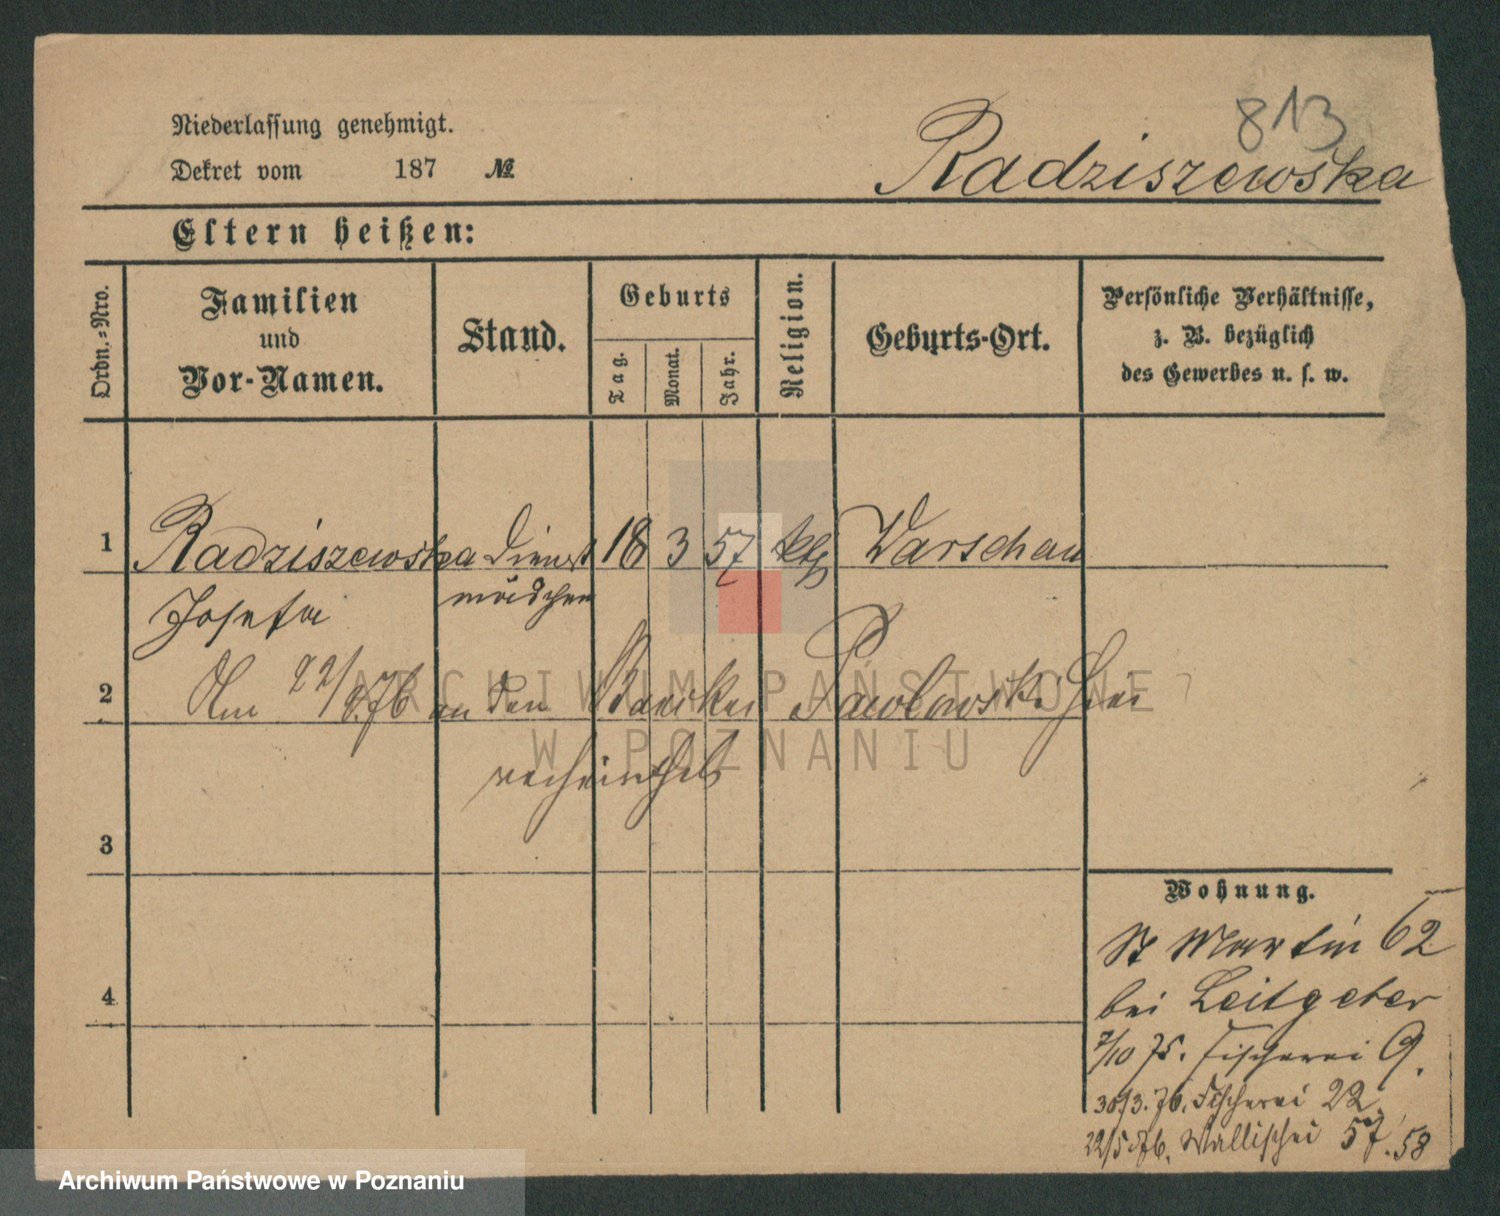 813
Niederlassung genehmigt.
Dekret vom 187 №
Radziszewska
Eltern heißen:
Ordn.-Nro.
Familien und Vor-Namen.
Stand.
Geburts
Tag.
Monat.
Jahr.
Religion.
Geburts-Ort.
Persönliche Verhältnisse,
z. B. bezüglich
des Gewerbes u. s. w.
1 Radziszewska Dienst 18 3 57 kth Warschau
Josefa mädchen
2 Am 22/ 76 an den Pawlowski hier
verheirathet
3
4
Wohnung.
St Martin 62
bei Leitgeber
7/10 75. Fischerei 9.
30/3. 76. Fischerei 22.
22/5 76. Wallischei 57.58
ARCHIWUM PAŃSTWOWE
W POZNANIU
Archiwum Państwowe w Poznaniu